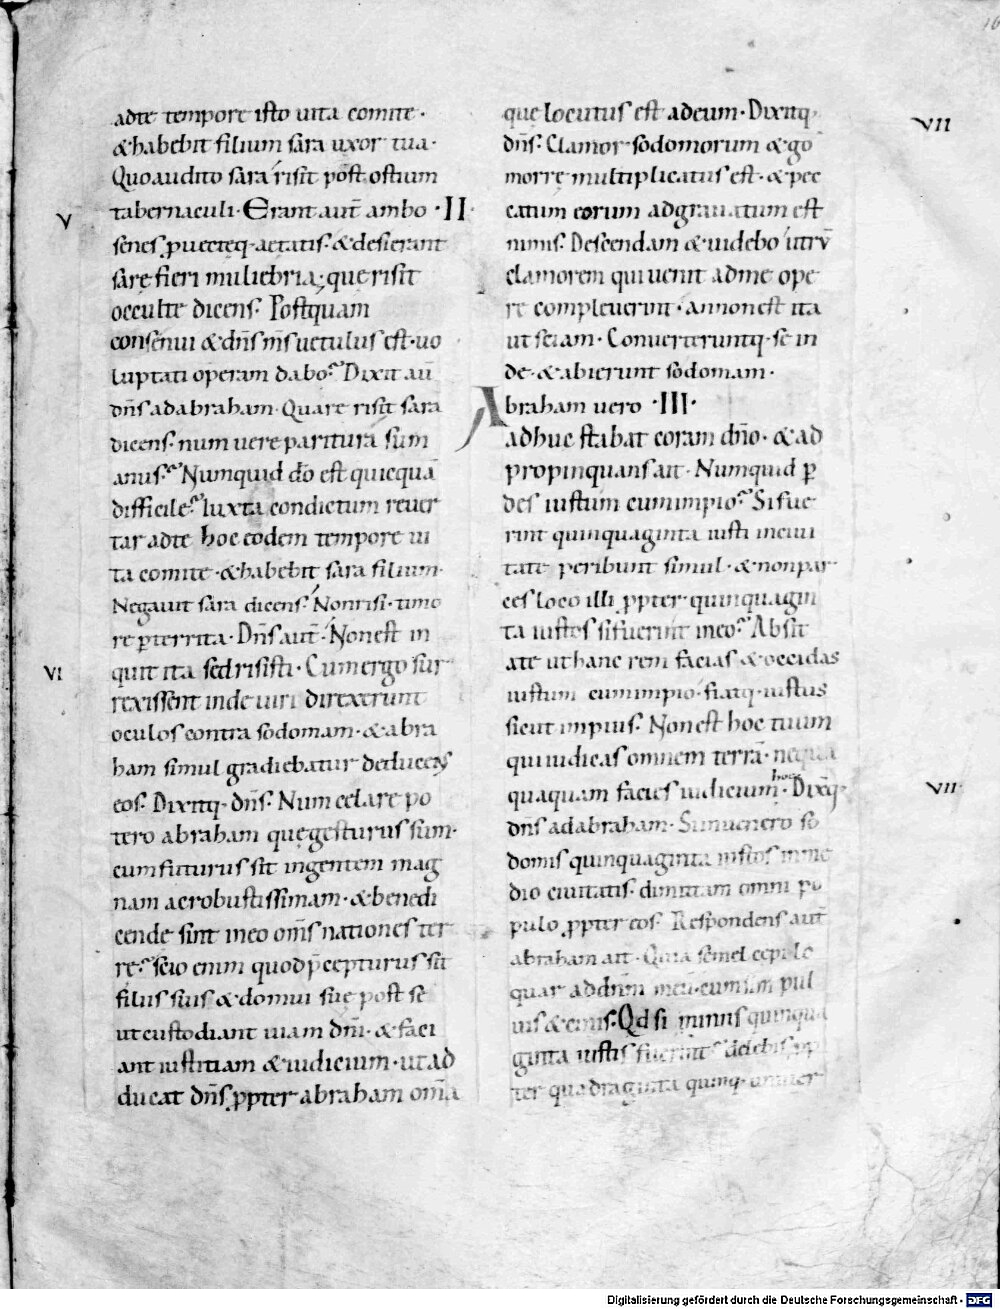 16
adte tempore isto uita comite·
&habebit filium sara uxor tua·
Quoaudito sara risit post ostium
tabernaculi· Erant aut̄ ambo ·II·
V
senes ꝓuecteq· aetatis· &desierant
sarę fieri muliebria; quę risit
occulte dicens· Postquam
consenui & dn̄s m̄s uetulus est· uo
luptati operam dabo? Dixit aū
dn̄s adabraham· Quare risit sara
dicens· num uere paritura sum
anus? Numquid dō est quicquā
difficile? Iuxta condictum reuer
tar adte hoc eodem tempore ui
ta comite· &habebit sara filium·
Negauit sara dicens· Nonrisi· timo
re ꝑterrita· Dn̄s aut̄· Nonest in
VI
quit ita sedrisisti· Cumergo sur
rexissent inde uiri direxerunt
oculos contra sodomam· &abra
ham simul gradiebatur deducens
eos· Dixitq· dn̄s· Num celare po
tero abraham quę gesturus sum·
cum futurus sit ingentem mag
nam acrobustissimam· &benedi
cende sint ineo om̄s nationes ter
re? scio enim quod p̄cepturus sit
filiis suis &domui suę post se
utcustodiant uiam dn̄i· & faci
ant iustitiam &iudicium· utad
ducat dn̄s ꝓpter abraham om̄a
quę locutus est adeum· Dixitq·
VII
dn̄s· Clamor sodomorum &go
morrę multiplicatus est· &pec
catum eorum adgrauatum est
nimis· Descendam &uidebo utrū
clamorem qui uenit adme ope
re compleuerint· annonest ita
ut sciam· Conuerteruntq· se in
de· &abierunt sodomam·
Abraham uero ·III·
adhuc stabat coram dn̄o· &ad
propinquans ait· Numquid ꝑ
des iustum cumimpio? Sifue
rint quinquaginta iusti inciui
tate peribunt simul· &nonpar
ces loco illi ꝓpter quinquagin
ta iustos sifuerint ineo? Absit
ate uthanc rem facias &occidas
iustum cumimpio· fiatq· iustus
sicut impius· Nonest hoc tuum
quiiudicas omnem terrā· nequa
quaquam facies iudicium hoc· Dixitq·
VII
dn̄s adabraham· Siinuenero so
domis quinquaginta iustos inme
dio ciuitatis· dimittam omni po
pulo ꝓpter eos· Respondens aut̄
abraham ait· Quia semel cepi lo
quar addn̄m meū· cumsim pul
uis &cinis· Qd si minus quinqua
ginta iustis fuerint? delebis ꝓp
ter quadraginta quinq· uniuer
Digitalisierung gefördert durch die Deutsche Forschungsgemeinschaft - DFG